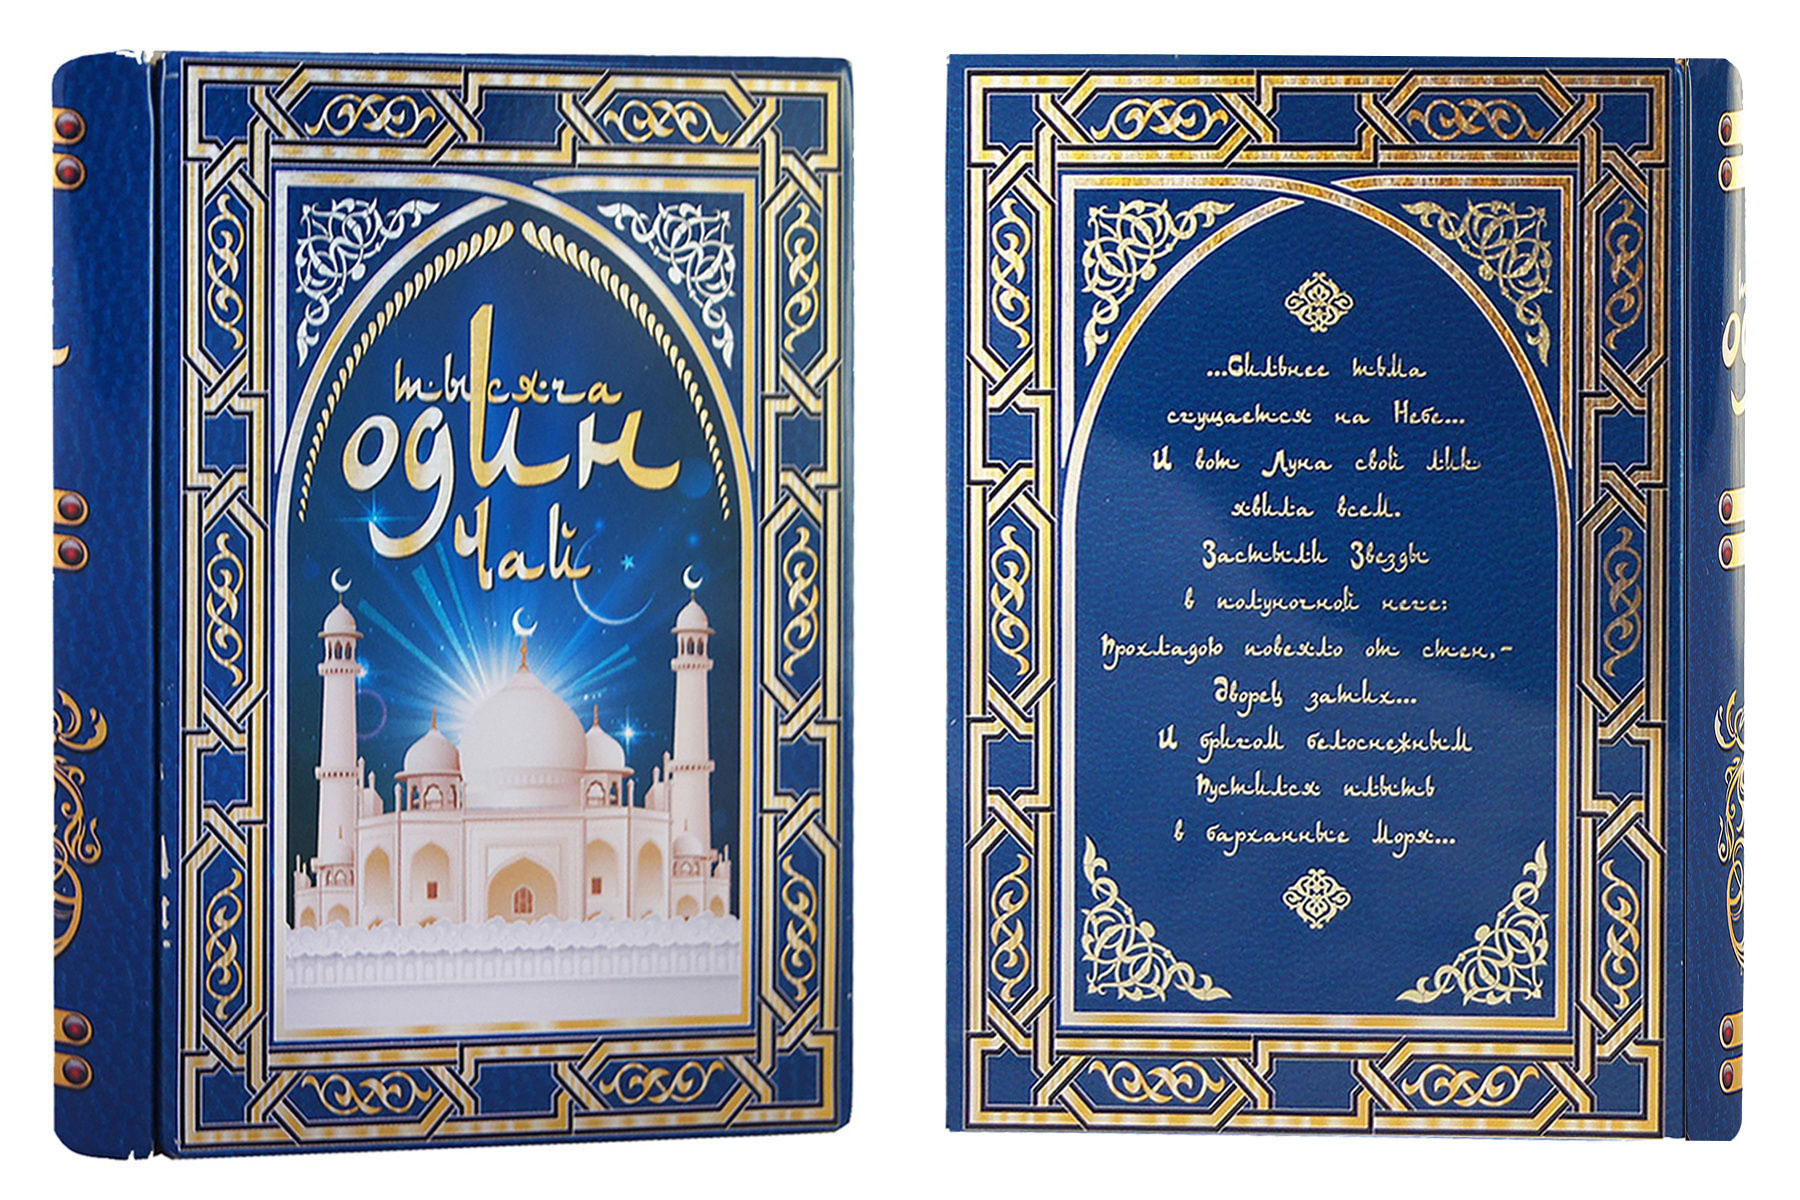 тысяча
один
чай
...Сильнее тьма
сгущается на Небе...
И вот Луна свой лик
явила всем.
Застыли Звезды
в полуночной неге:
Прохладою повеяло от стен,-
Дворец затих...
И бригом белоснежным
Пустился плыть
в барханные Моря...